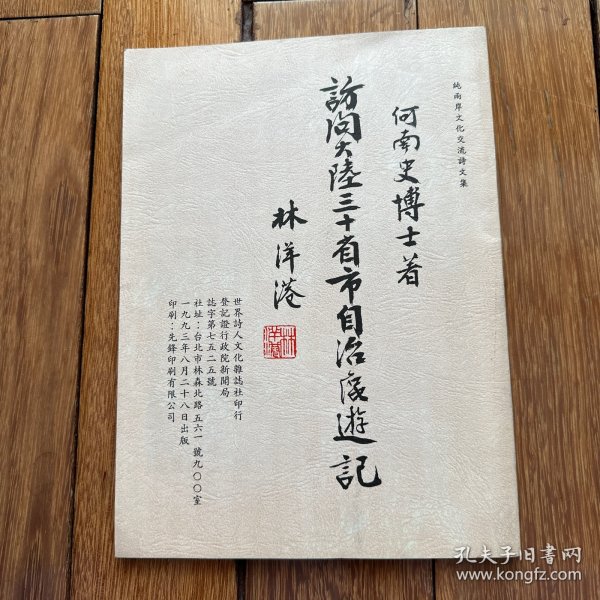 純兩岸文化交流詩文集
何南史博士著
訪問大陸三十省市自治區遊記
林洋港
世界詩人文化雜誌社印行
登記證行政院新聞局
誌字第七五二五號
社址：台北市林森北路五六一號九〇〇室
一九九三年八月二十八日出版
印刷：先鋒印刷有限公司
孔夫子旧书网
www.kongfz.com